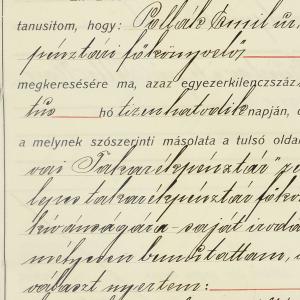 tanusitom, hogy: Pollák Emil úr
pénztári főkönyvelő
megkeresésére ma, azaz egyezerkilenczszáz
tus hó tizenhatodik napján,
a melynek szószerinti másolata a tulsó olda
vári Takarékpénztár"
takarékpénztár főkö
kívánságára - saját iroda
helyesen bemutattam,
választ nyertem: